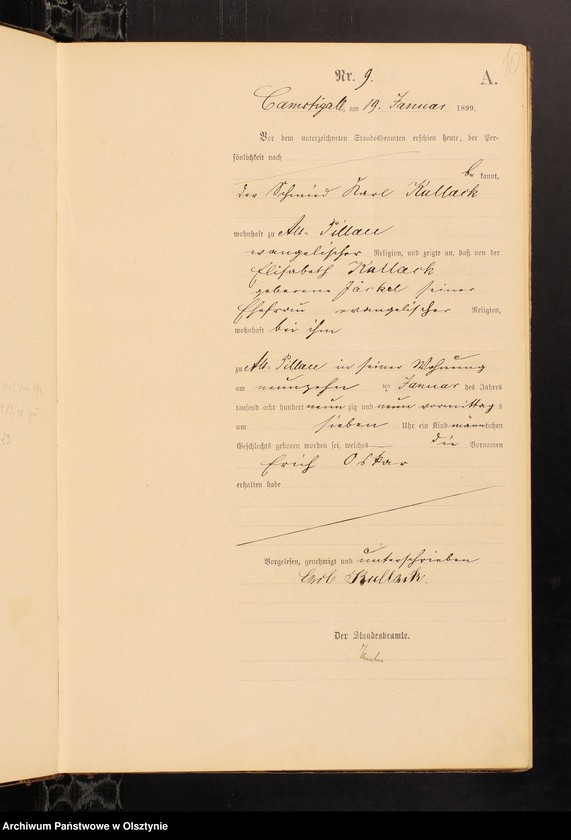 10
Nr. 9. A.
Camstigall, am 19. Januar 1899.
Vor dem unterzeichneten Standesbeamten erschien heute, der Per-
sönlichkeit nach
be kannt,
der Schmied Karl Kullack
wohnhaft zu Alt-Pillau
evangelischer Religion, und zeigte an, daß von der
Elisabeth Kullack
geborene Jäckel seiner
Ehefrau evangelischer Religion,
wohnhaft bei ihm
zu Alt-Pillau in seiner Wohnung
am neunzehn ten Januar des Jahres
tausend acht hundert neun zig und neun vormittag s
um sieben Uhr ein Kind männlichen
Geschlechts geboren worden sei, welches die Vornamen
Erich Oskar
erhalten habe
Vorgelesen, genehmigt und unterschrieben
Carl Kullack.
Der Standesbeamte.
Archiwum Państwowe w Olsztynie